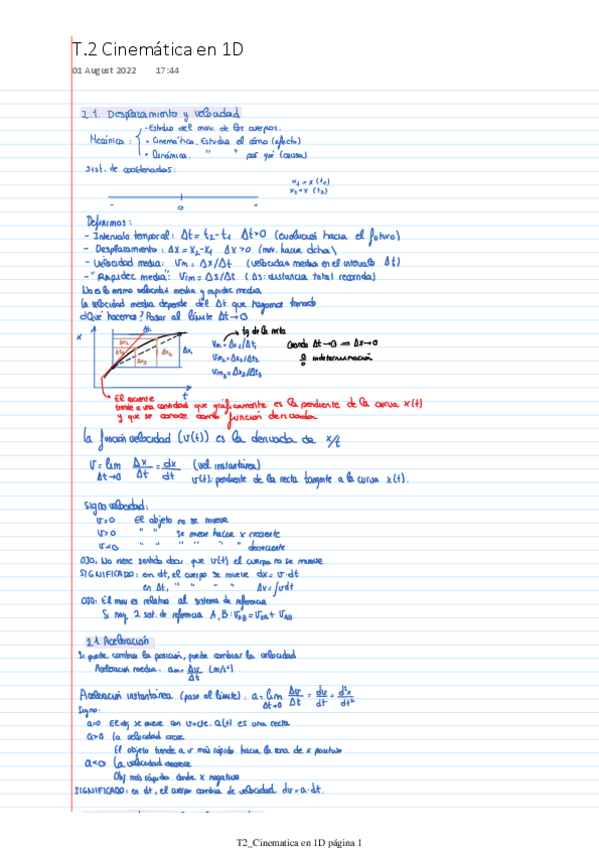 T.2 Cinemática en 1D
01 August 2022 17:44
2.1. Desplazamiento y velocidad
- Estudio del mov. de los cuerpos.
Mecánica: { • Cinemática. Estudia el cómo (efecto)
• Dinámica. " " por qué (causa)
Sist. de coordenadas:
x₁ = x (t₁)
x₂ = x (t₂)
- 0 +
Definimos:
- Intervalo temporal: Δt = t₂ - t₁ Δt > 0 (evolución hacia el futuro)
- Desplazamiento: Δx = x₂ - x₁ Δx > 0 (mov. hacia dcha)
- Velocidad media: Vm = Δx/Δt (velocidad media en el intervalo Δt)
- "Rapidez media": Vrm = Δs/Δt (Δs: distancia total recorrida)
No es lo mismo velocidad media y rapidez media
La velocidad media depende del Δt que hayamos tomado
¿Qué hacemos? Pasar al límite Δt→0
x
t
tg de la recta
Vm₁ = Δx₁/Δt₁
Vm₂ = Δx₂/Δt₂
Vm₃ = Δx₃/Δt₃
Cuando Δt→0 ⟹ Δx→0
0/0 indeterminación
El cociente
tiende a una cantidad que gráficamente es la pendiente de la curva x(t)
y que se conoce como función derivada
La función velocidad (v(t)) es la derivada de x/t
v = lim Δt→0 Δx/Δt = dx/dt (vel. instantánea)
v(t): pendiente de la recta tangente a la curva x(t).
Signo velocidad:
v=0 El objeto no se mueve
v>0 " " se mueve hacia x creciente
v<0 " " " " " decreciente
OJO: No tiene sentido decir que v(t) el cuerpo no se mueve
SIGNIFICADO: en dt, el cuerpo se mueve dx = v·dt
en Δt, " " " " Δx = ∫vdt
OJO: El mov es relativo al sistema de referencia
Si hay 2 sist. de referencia A, B:
2.1 Aceleración
Si puede cambiar la posición, puede cambiar la velocidad
Aceleración media: am = Δv/Δt (m/s²)
Aceleración instantánea (paso al límite): a = lim Δt→0 Δv/Δt = dv/dt = d²x/dt²
Signo:
a=0 El obj se mueve con v=cte. x(t) es una recta
a>0 La velocidad crece
El objeto tiende a ir más rápido hacia la zona de x positivo
a<0 La velocidad decrece
Obj más rápido donde x negativo
SIGNIFICADO: en dt, el cuerpo cambia de velocidad dv = a·dt.
T2_Cinematica en 1D página 1